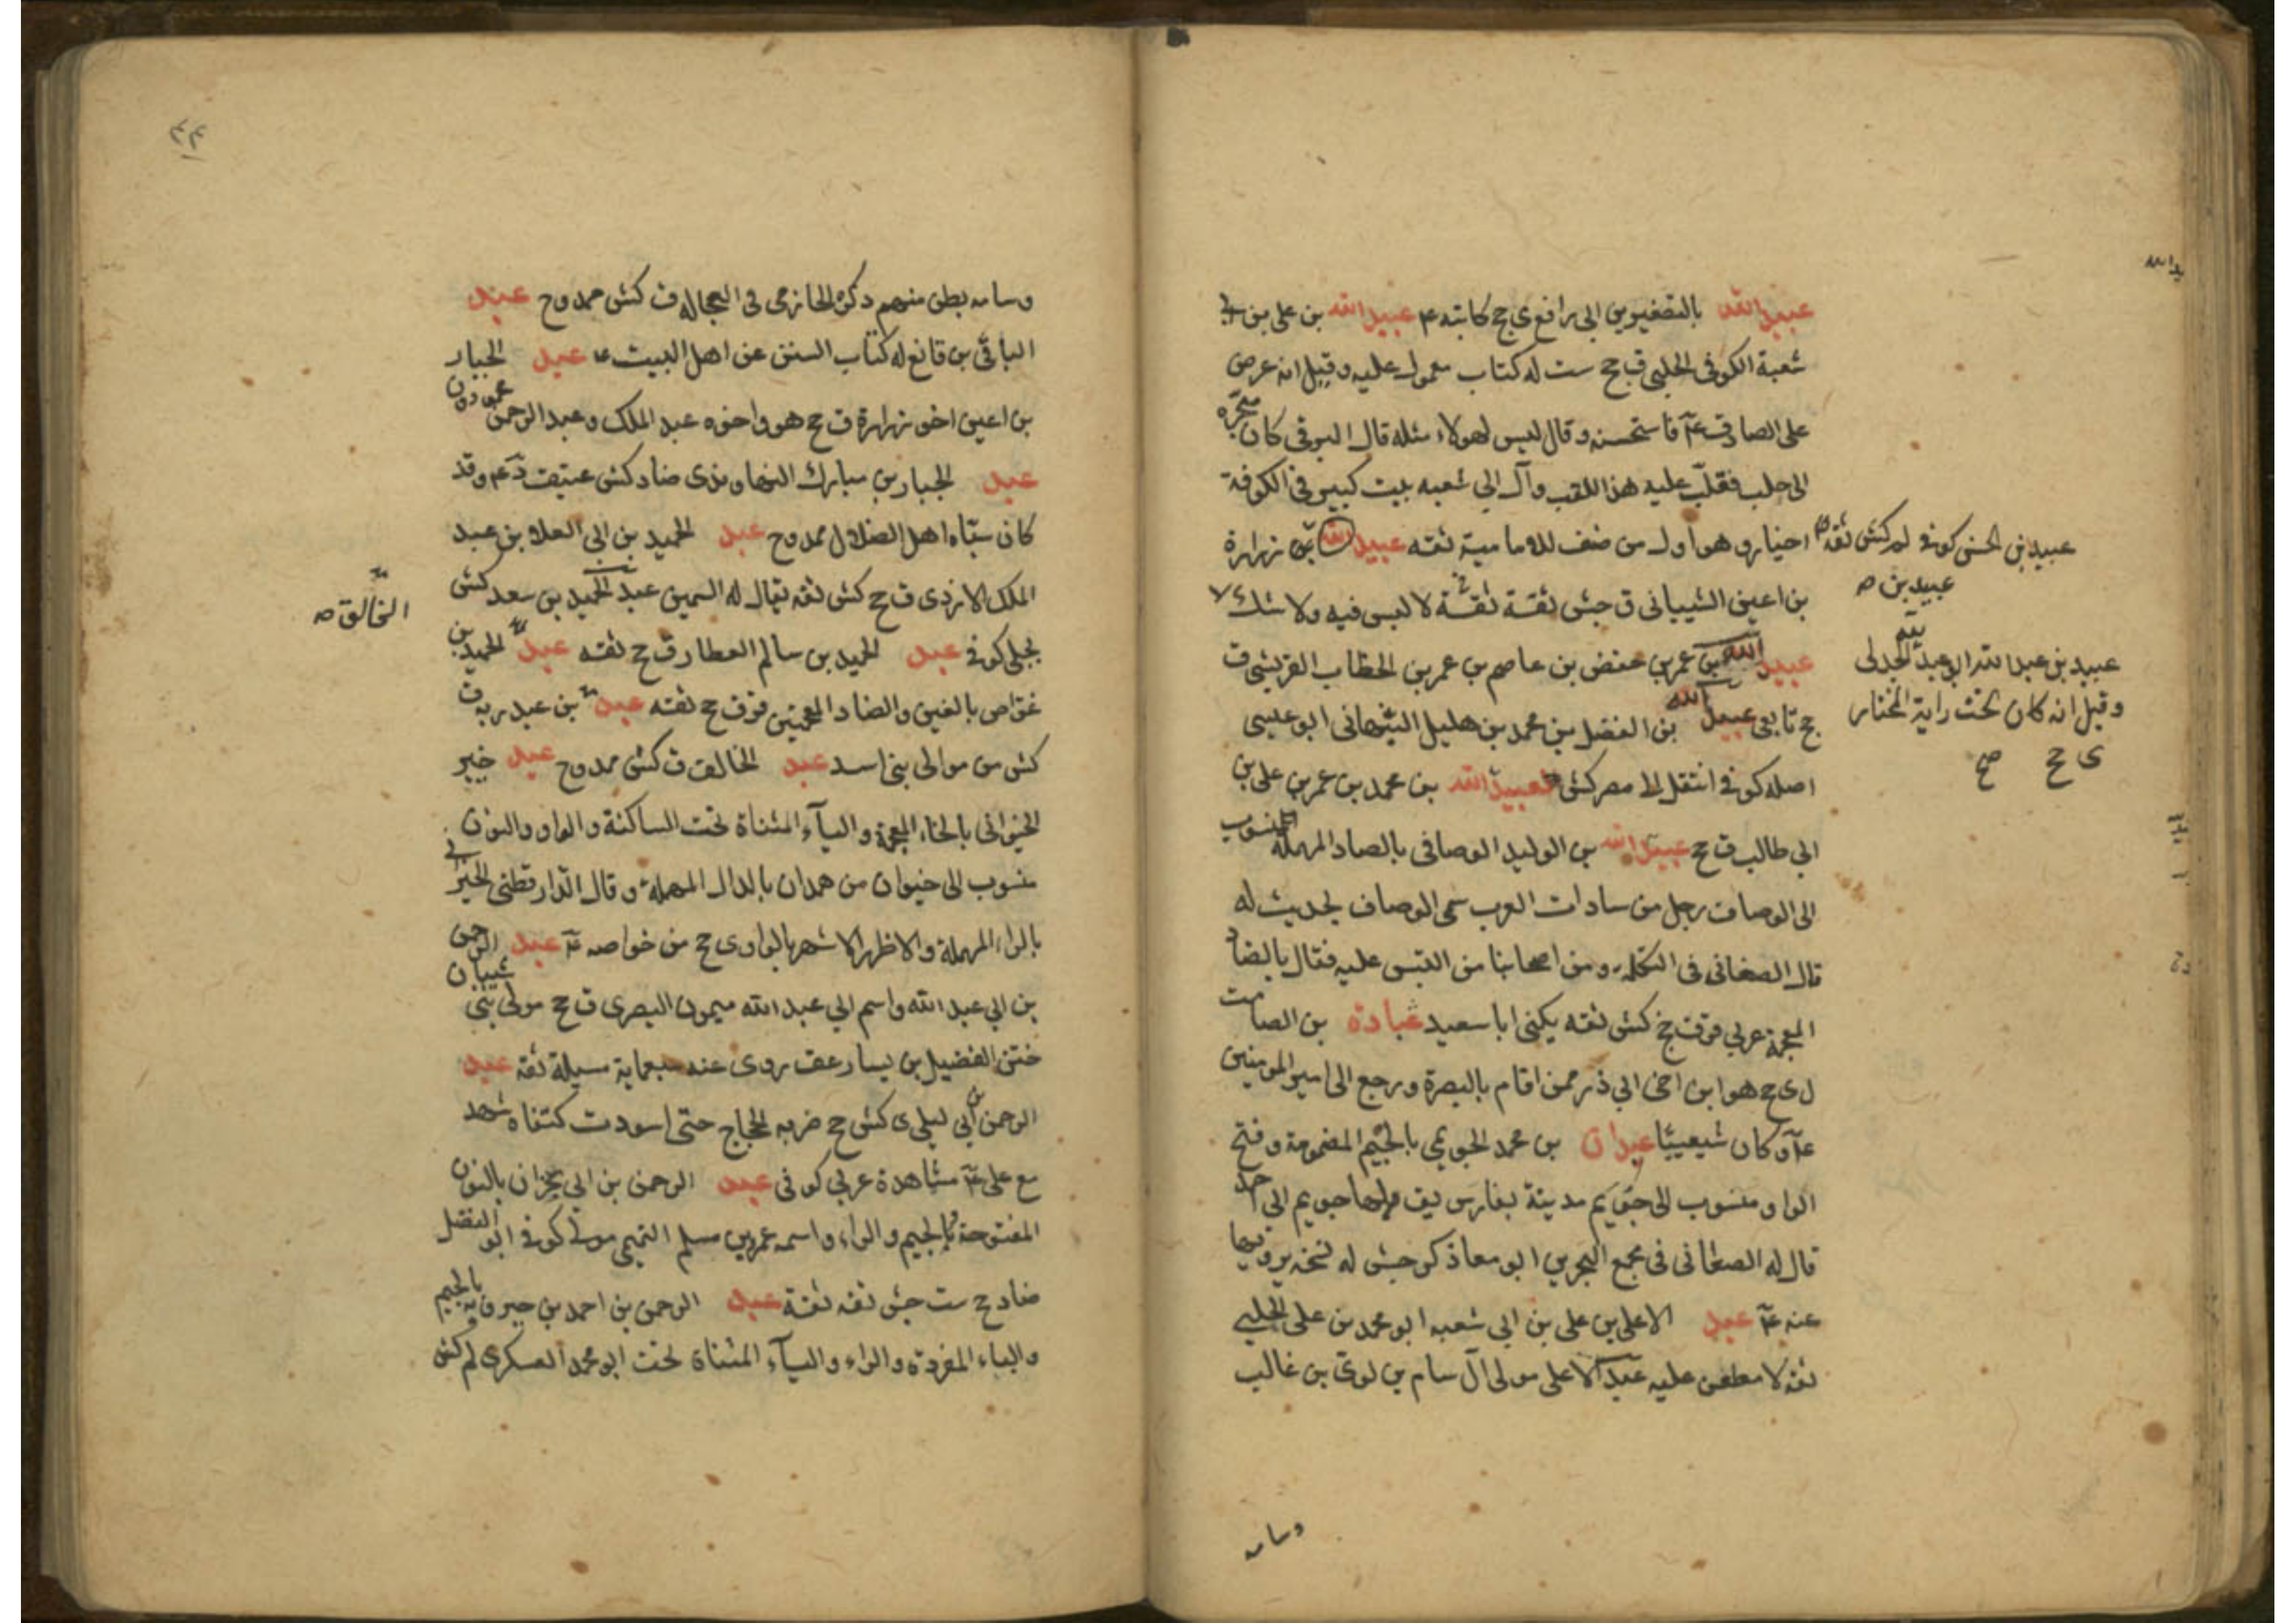 عبيدالله بالتصغير بن ابي رافع ي ج كاتبه ع عبيدالله بن علي بن ابي
شعبة الكوفي الحلبي ق ج ست له كتاب معمول عليه وقيل انه عرض
على الصادق ع۴ فاستحسنه وقال ليس لهولاء مثله قال البرقي كان متجره
الى حلب فغلب عليه هذا اللقب وآل ابي شعبه بيت كبير في الكوفة
اخيار وهو اول من صنف للامامية ثقه عبيدالله بن زرارة
بن اعين الشيباني ق جش ثقة ثقة لا لبس فيه ولا شك
عبيد الله بن عمر بن حفص بن عاصم بن عمر بن الخطاب القريشي ق
ج تابعي عبيد الله بن الفضل بن محمد بن هليل النبهاني ابو عيسى
اصله كوفي انتقل الى مصر كش عبيدالله بن محمد بن عمر بن علي بن
ابي طالب ق ج عبيدالله بن الوليد الوصافي بالصاد المهملة المنسوب
الى الوصاف رجل من سادات العرب سمى الوصاف لحديث له
قال الصغاني في التكلمه ومن اصحابنا من التبس عليه فقال بالضاد
المعجمة عربي قرق ج كش ثقه يكنى ابا سعيد عبادة بن الصامت
ل ي ج هو ابن اخي ابي ذر ممن اقام بالبصرة ورجع الى امير المومنين
ع۴ وكان شيعييا عبدان بن محمد الجويمي بالجيم المضمومة وفتح
الواو منسوب الى جويم مدينة بفارس يق لها جويم ابي احمد
قال له الصغاني في مجمع البحرين ابو معاذ كر جش له نسخه يرويها
عنه ع۴ عبد الاعلى بن علي بن ابي شعبه ابو محمد بن علي الحلبي
ثقه لا مطعن عليه عبد الاعلى مولى آل سام بن لوي بن غالب
وسامه
عبيد بن الحسن كوفي لم كش ثقه
عبيد بن ص
عبيد بن عبد الله ابو عبد الله الجدلي
وقيل انه كان تحت راية المختار
ي ج صح
وسامه بطن منهم ذكره الحازمي في العجاله ق كش ممدوح عبد
الباقي بن قانع له كتاب السنن عن اهل البيت ع عبد الجبار
بن اعين اخو زرارة ق ج هو واخوه عبد الملك وعبد الرحمن محمودون
عبد الجبار بن مبارك النهاوندي ضا د كش عتيق د ع۴ وقد
كان سباه اهل الضلال ممدوح عبد الحميد بن ابي العلا بن عبد
الملك الازدي ق ج كش ثقه يقال له السمين عبد الحميد بن سعد كش
بجلي كوفي عبد الحميد بن سالم العطار ق ج ثقه عبد الحميد بن
غواص بالغين والضاد المعجمتين قرق ج ثقه عبد بن عبد ربه ق
كش من موالي بني اسد عبد الخالق ق كش ممدوح عبد خير
الخيواني بالخاء المعجمة والياء المثناة تحت الساكنة والواو والنون
منسوب الى خيوان من همدان بالدال المهملة وقال الدار قطني الخيراني
بالراء المهملة والاظهر الاشهر بالواو ي ج من خواصه ع۴ عبد الرحمن
بن ابي عبد الله واسم ابي عبد الله ميمون البصري ق ج مولى بني شيبان
ختن الفضيل بن يسار عقـ روى عنه سبعماية مسيلة ثقه عبد
الرحمن بن ابي ليلى ي كش ج ضربه الحجاج حتى اسودت كتفاه شهد
مع علي ع۴ مشاهدة عربي كوفي عبد الرحمن بن ابي نجران بالنون
المفتوحة والجيم والراء واسمه عمر بن مسلم التميمي مولى كوفي ابو الفضل
ضا د ج ست جش ثقه ثقة عبد الرحمن بن احمد بن جبرويه بالجيم
والباء المفردة والراء والياء المثناة تحت ابو محمد العسكري لم كش
الخالق ص